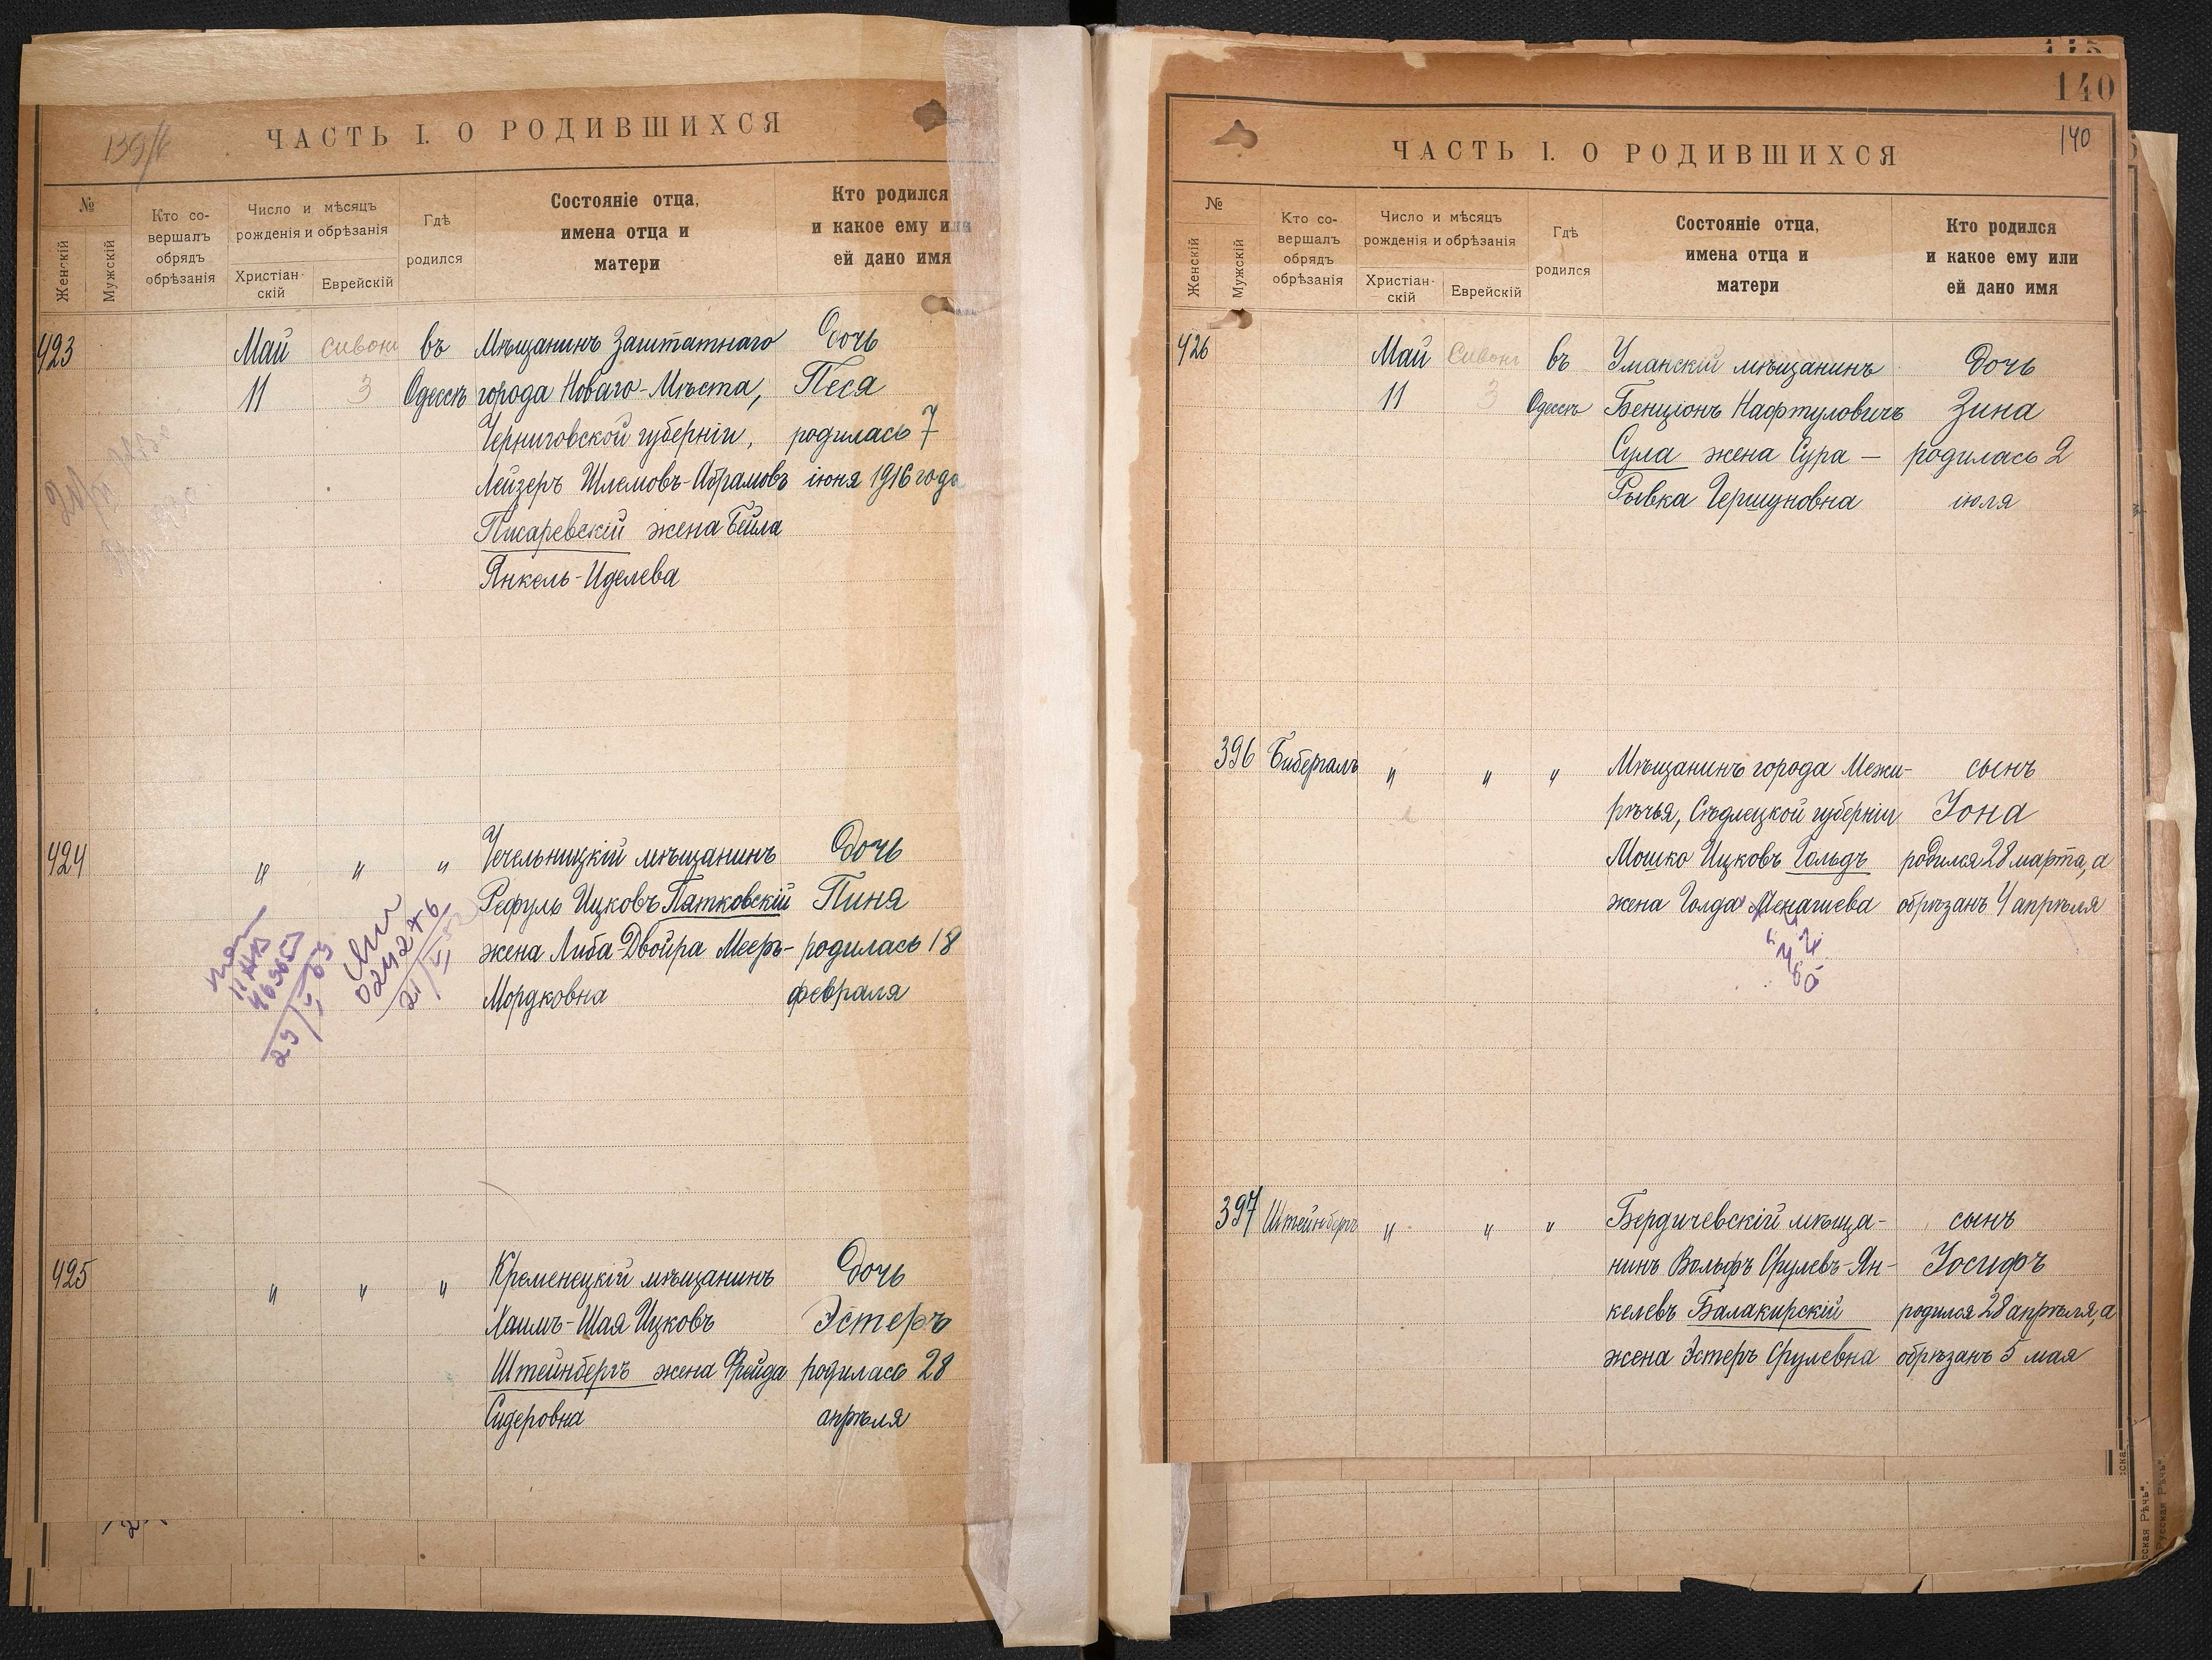 139/б
ЧАСТЬ I. О РОДИВШИХСЯ
№
Женскій
Мужскій
Кто со-
вершалъ
обрядъ
обрѣзанія
Число и мѣсяцъ
рожденія и обрѣзанія
Христіан-
скій
Еврейскій
Гдѣ
родился
Состояніе отца,
имена отца и
матери
Кто родился
и какое ему или
ей дано имя
423 Май Сивонъ въ Мѣщанинъ Заштатнаго Дочь
11 3 Одессѣ города Новаго-Мѣста, Песя
Черниговской губерніи, родилась 7
Лейзеръ Шлемовъ-Абрамовъ іюня 1916 года
Писаревскій жена Бейла
Янкель-Иделева
424 " " " Чечельницкій мѣщанинъ Дочь
Рефуль Ицковъ Пятковскій Пиня
жена Либа-Двойра Мееръ- родилась 18
Мордковна февраля
425 " " " Кременецкій мѣщанинъ Дочь
Хаимъ-Шая Ицковъ Эстеръ
Штейнбергъ жена Фрейда родилась 28
Сидеровна апрѣля
140
140
ЧАСТЬ I. О РОДИВШИХСЯ
№
Женскій
Мужскій
Кто со-
вершалъ
обрядъ
обрѣзанія
Число и мѣсяцъ
рожденія и обрѣзанія
Христіан-
скій
Еврейскій
Гдѣ
родился
Состояніе отца,
имена отца и
матери
Кто родился
и какое ему или
ей дано имя
426 Май Сивонъ въ Уманскій мѣщанинъ Дочь
11 3 Одессѣ Бенціонъ Нафтуловичъ Зина
Сула жена Сура — родилась 2
Рывка Гершуновна іюля
396 Бибергалъ " " " Мѣщанинъ города Межи- сынъ
рѣчья, Сѣдлецкой губерніи Іона
Мошко Ицковъ Гольдъ родился 28 марта, а
жена Голда Менашева обрѣзанъ 4 апрѣля
397 Штейнбергъ " " " Бердичевскій мѣща- сынъ
нинъ Вольфъ Срулевъ-Ян- Іосифъ
келевъ Балакирскій родился 28 апрѣля, а
жена Эстеръ Срулевна обрѣзанъ 5 мая
Русская Рѣчь".